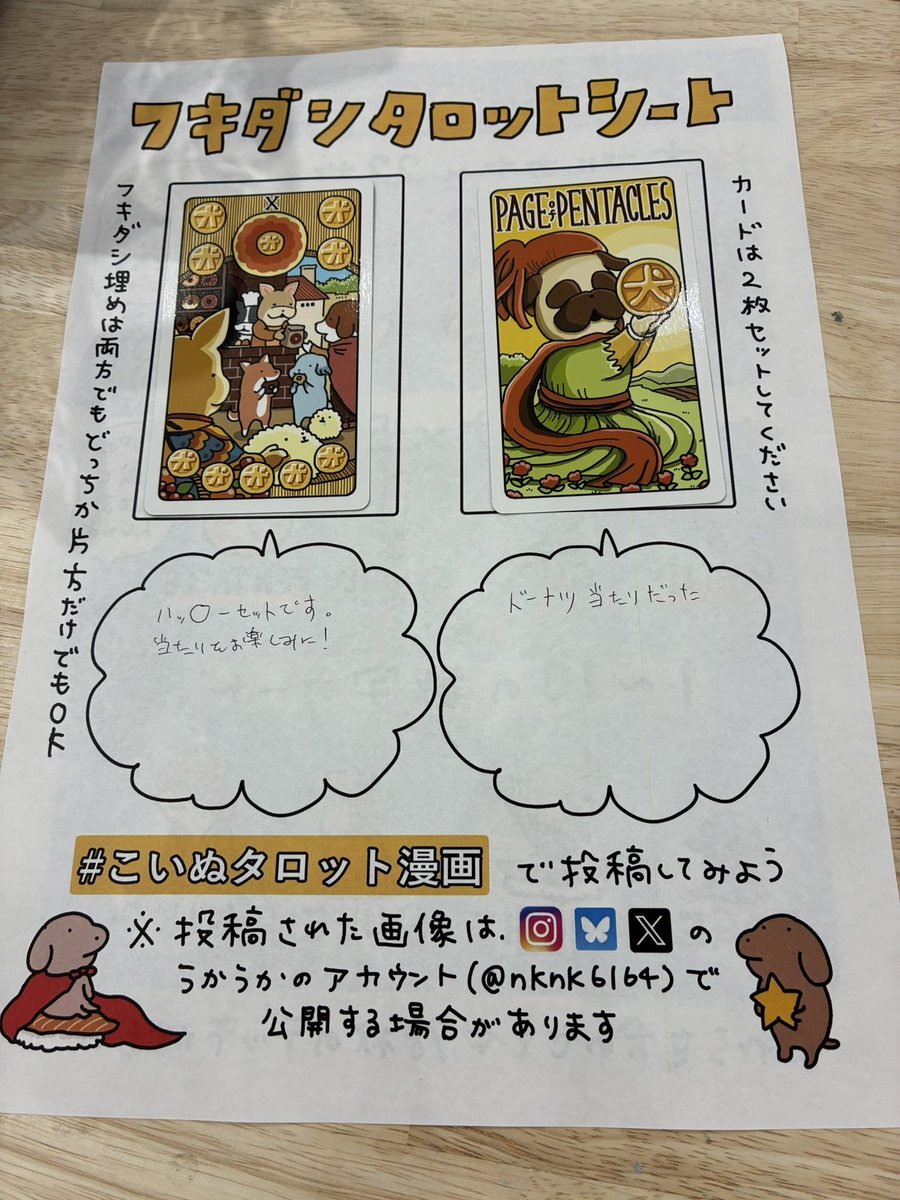 フキダシタロットシート
カードは2枚セットしてください
フキダシ埋めは両方でもどっちか片方だけでもOK
X
犬
犬
犬
犬
犬
犬
犬
犬
犬
犬
PAGE of PENTACLES
犬
ハッ〇ーセットです。
当たりもお楽しみに!
ドーナツ当たりだった
#こいぬタロット漫画 で投稿してみよう
※投稿された画像は、 の
うかうかのアカウント(@nknk6164)で
公開する場合があります